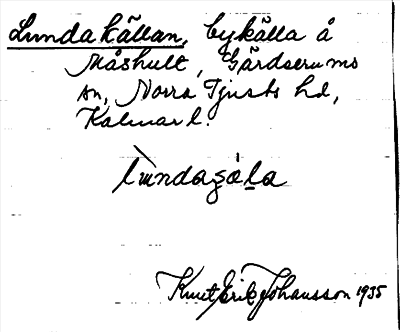 Lunda källan, bykälla å
Måshult, Gärdserums
sn, Norra Tjusts hd,
Kalmar l.
Knut Erik Johansson 1935